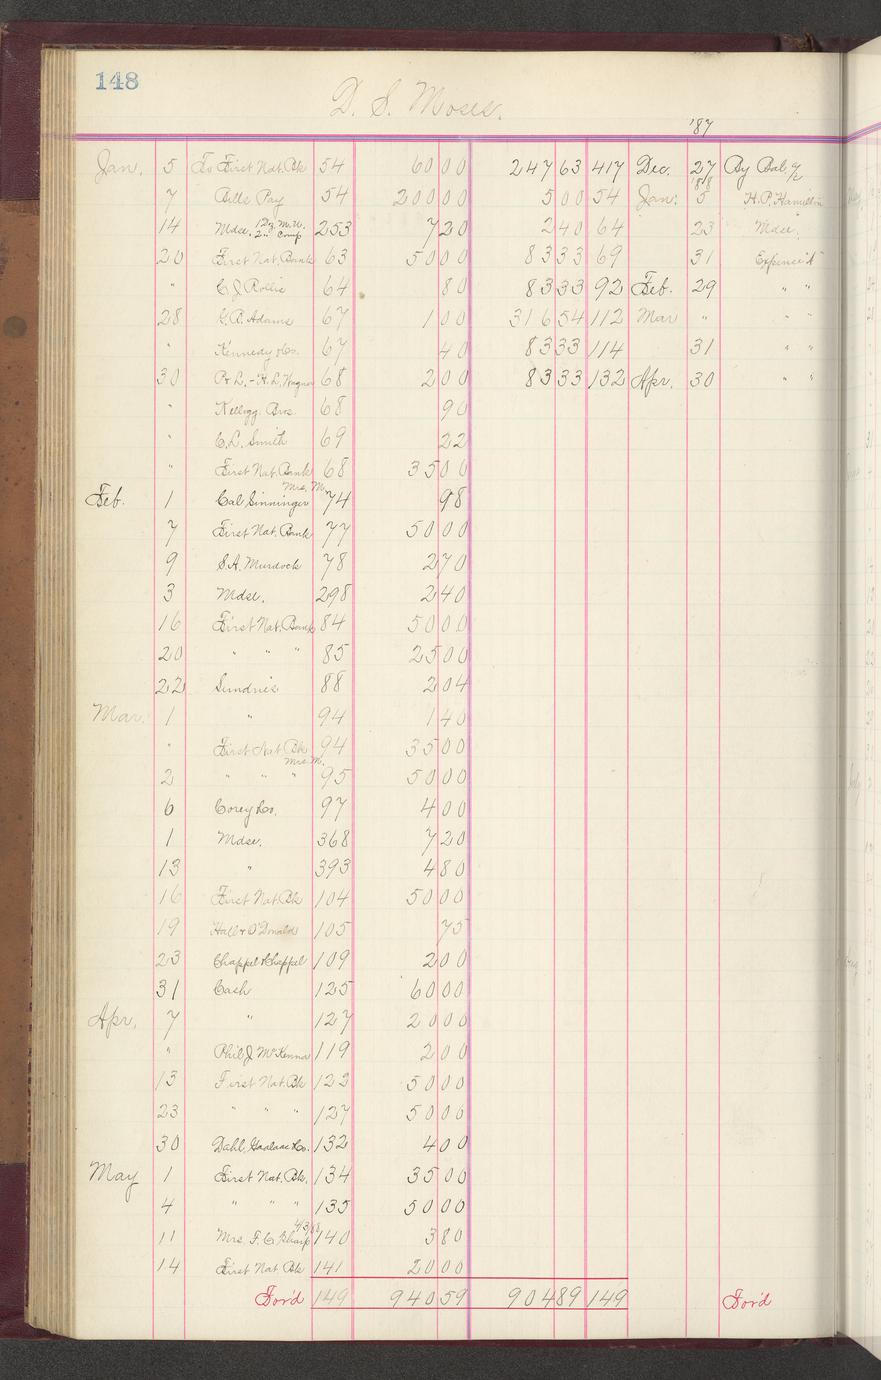 148
D. S. Moses.
'87
Jan. 5 To First Nat. Bk 54 60 00 247 63 417 Dec. 27 By Bal. %
'88
7 Bills Pay 54 200 00 5 00 54 Jan. 5 H. P. Hamilton
14 Mdse. 253 7 20 2 40 64 23 Mdse.
20 First Nat. Bank 63 50 00 83 33 69 31 Expense
" C. J. Rollie 64 80 83 33 92 Feb. 29 " "
28 Adams 67 1 00 316 54 112 Mar " " "
" Kennedy & Co. 67 40 83 33 114 31 " "
30 R. L. - H. L. Wagner 68 2 00 83 33 132 Apr. 30 " "
" Kellogg Bros 68 90
" C. L. Smith 69 22
" First Nat. Bank 68 35 00
Mrs. M.
Feb. 1 Cal Sinninger 74 98
7 First Nat. Bank 77 50 00
9 S. A. Murdock 78 2 70
3 Mdse. 298 2 40
16 First Nat. Bank 84 50 00
20 " " " 85 25 00
22 Sundries 88 2 04
Mar. 1 " 94 1 40
" First Nat. Bk 94 35 00
Mrs. M.
2 " " " 95 50 00
6 Corey & Co. 97 4 00
1 Mdse. 368 7 20
13 " 393 4 80
16 First Nat. Bk 104 50 00
19 Hall & O'Donald 105 75
23 Chappel & Chappel 109 2 00
31 Cash 125 60 00
Apr. 7 " 127 20 00
" Phil J. McKenna 119 2 00
13 First Nat. Bk 122 50 00
23 " " " 127 50 00
30 Dahl, & Co. 132 4 00
May 1 First Nat. Bk. 134 35 00
4 " " " 135 50 00
11 Mrs. F. C. Sharp 140 3 80
14 First Nat Bk 141 20 00
For'd 149 940 59 904 89 149 For'd